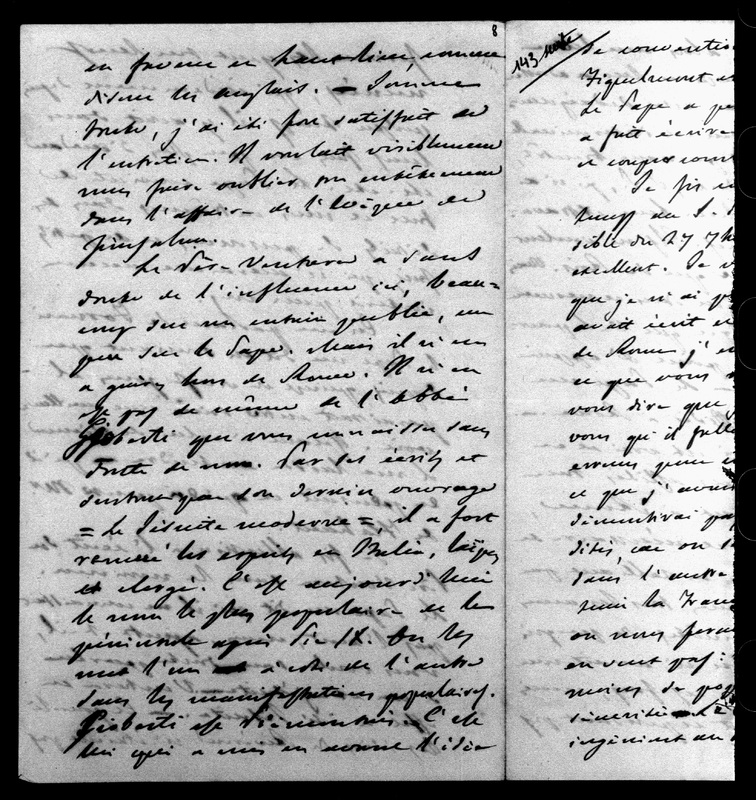 8
en faveur en haut lieu, comme
disent les anglais. — Somme
toute, j'ai été fort satisfait de
l'entretien. Il voulait visiblement
nous faire oublier son entêtement
dans l'affaire de l'Evêque de
Le Père Ventura a sans
doute de l'influence ici, beau=
coup sur un certain public, un
peu sur le Pape. Mais il n'en
a guère hors de Rome. Il n'en
est pas de même de l'abbé
Gioberti que vous connaissez sans
doute de nom. Par ses écrits et
surtout par son dernier ouvrage
= le Jésuite moderne =, il a fort
remué les esprits en Italie, laïques
et clergé. C'est aujourd'hui
le nom le plus populaire de la
péninsule après Pie IX. On les
met l'un à côté de l'autre
dans les manifestations populaires.
Gioberti est Piémontais. C'est
lui qui a mis en avant l'idée
143 suite
de convention
Fiquelmont et
Le Pape a
a fait écrire
et
Je
temps au
sible du 27 7b
excellent. Je
que je n'ai
avait écrit
de Rome j'
ce que vous
vous dire que
vous qu'il
erreurs pour
ce que j'avais
démentirai pas
dites, car on
dans l'autre
tenir la Fran
on nous
en veut pas :
moins de
sévérité
ingénient